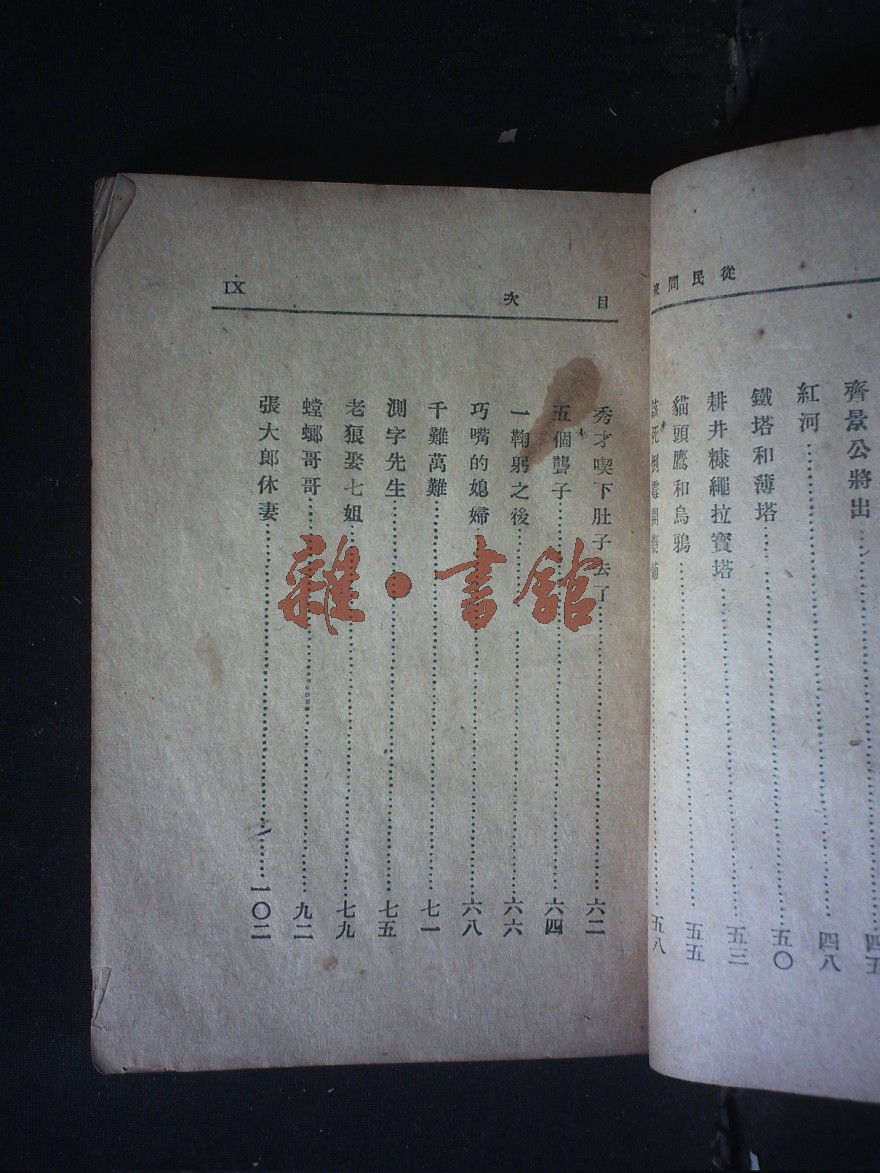 從民間來
齊景公將出……四五
紅河……四八
鐵塔和薄塔……五〇
耕井糠繩拉寶塔……五三
貓頭鷹和烏鴉……五五
該死倒霉開藥鋪……五八
目次 IX
秀才喫下肚子去了……六二
五個聾子……六四
一鞠躬之後……六六
巧嘴的媳婦……六八
千難萬難……七一
測字先生……七五
老狼娶七姐……七九
螳螂哥哥……九二
張大郎休妻……一〇二
雜·書館